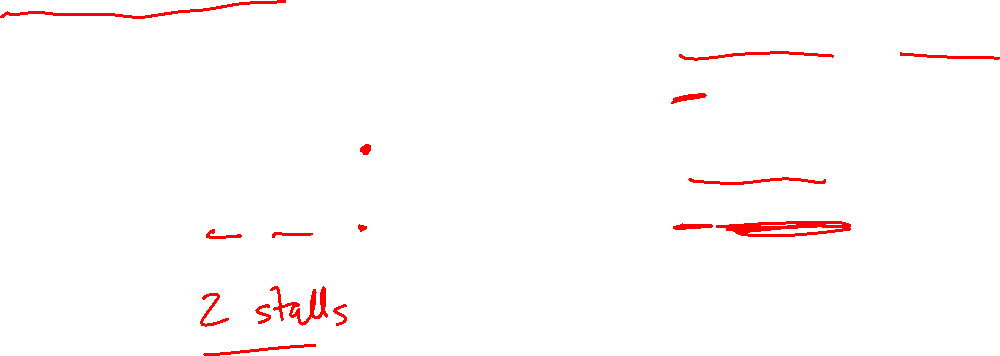 2 stalls